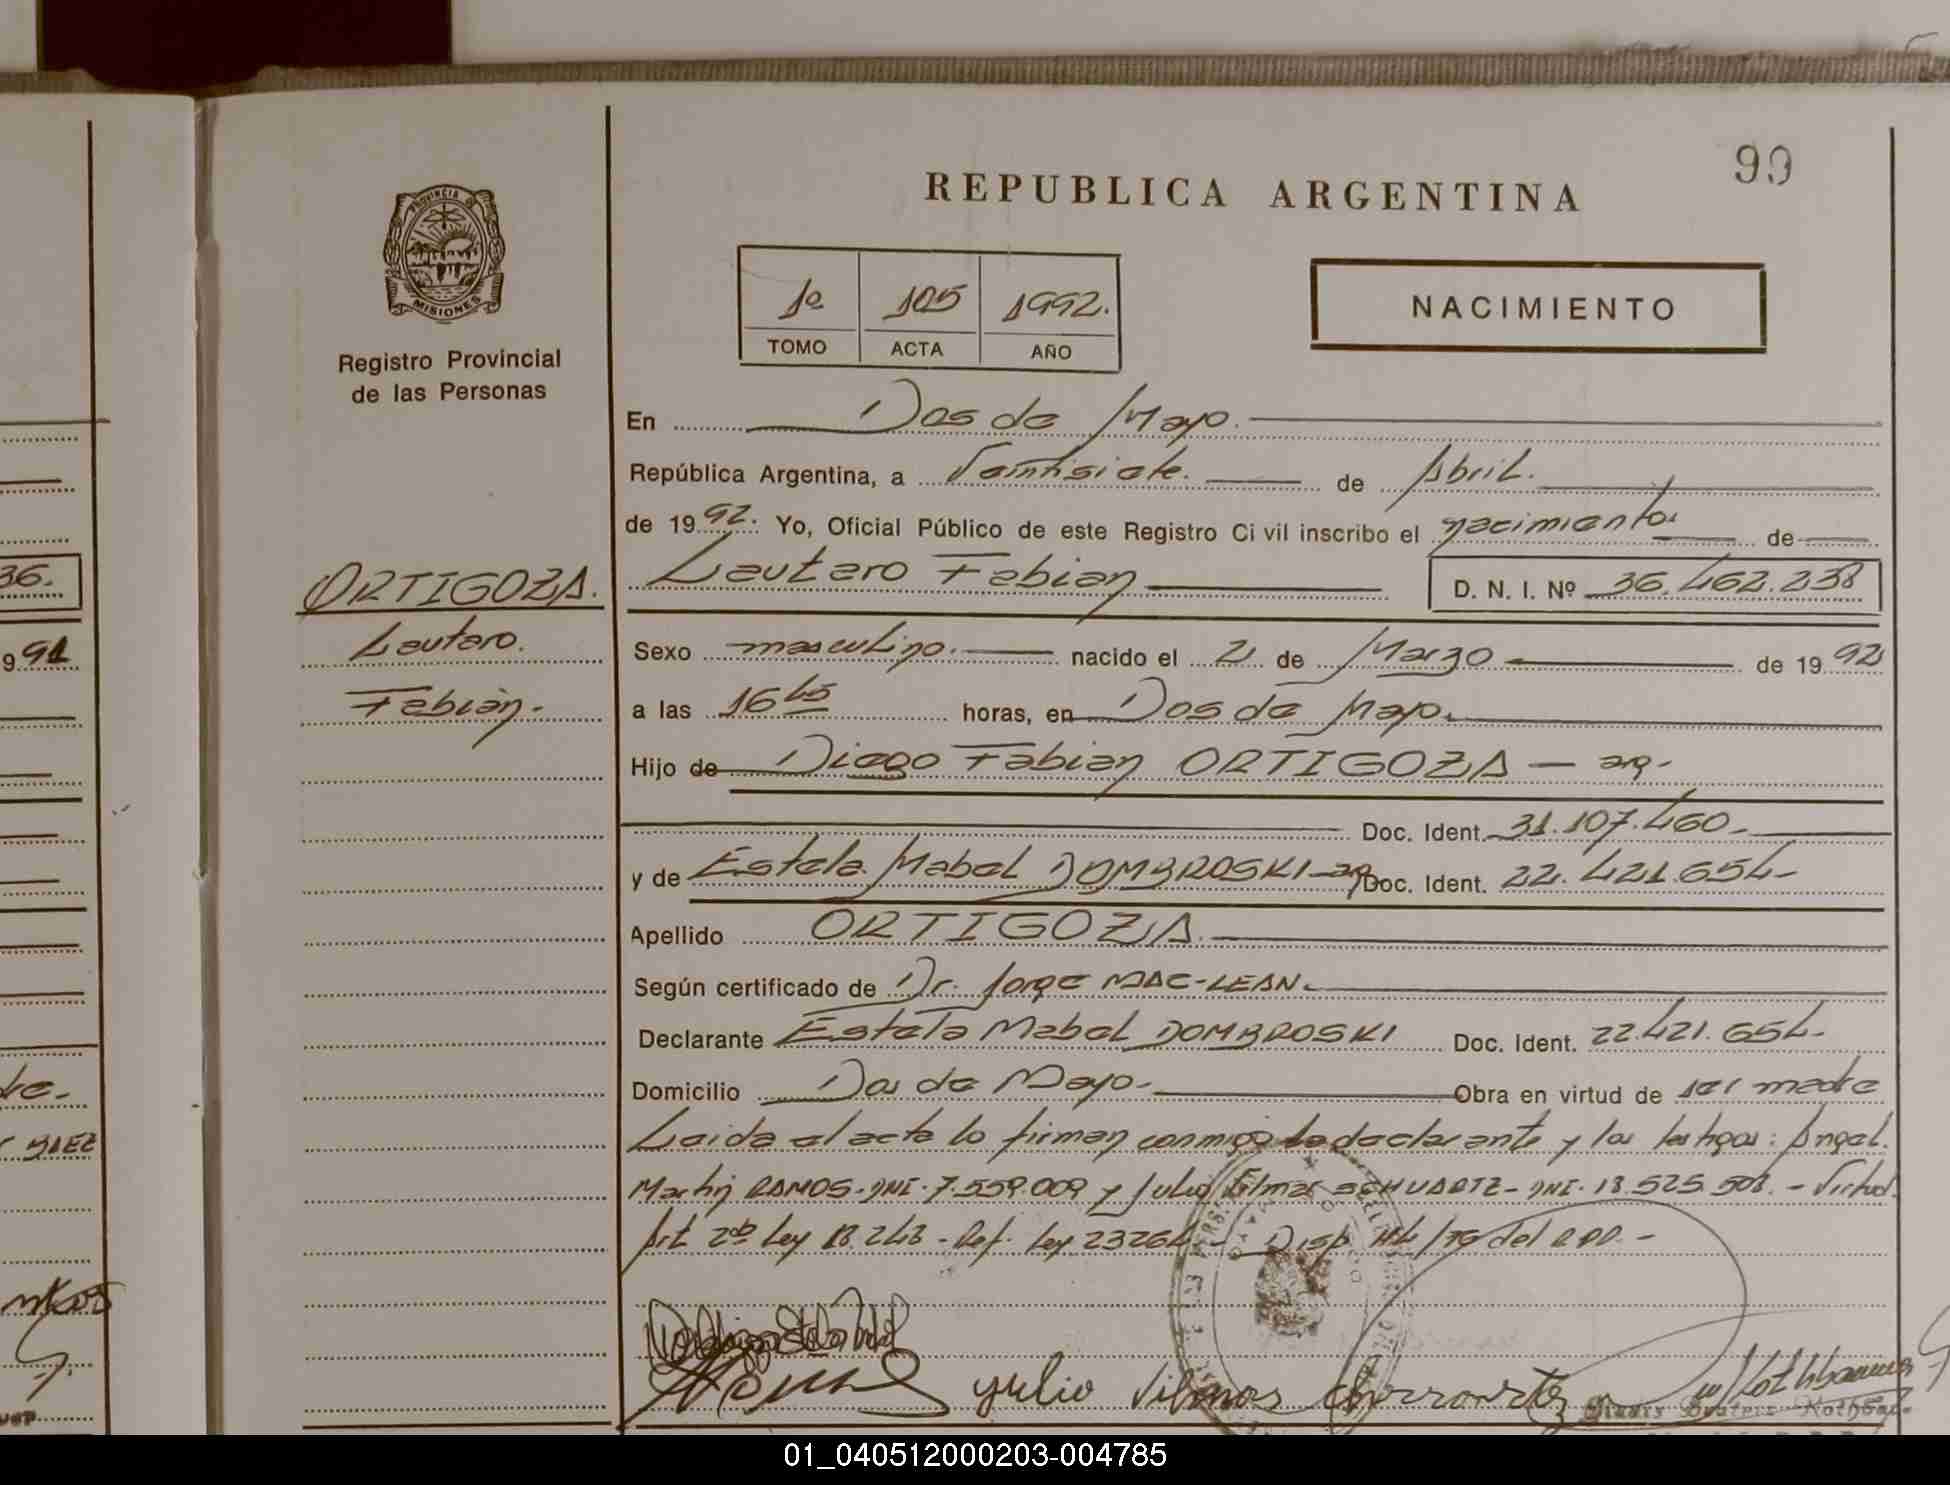 99
REPUBLICA ARGENTINA
PROVINCIA DE
MISIONES
Registro Provincial
de las Personas
1º 105 1992.
TOMO ACTA AÑO
NACIMIENTO
En Dos de Mayo.
República Argentina, a Veintisiete. de Abril.
de 1992. Yo, Oficial Público de este Registro Civil inscribo el nacimiento de
Lautaro Fabian D. N. I. Nº 36.462.238
ORTIGOZA.
Lautaro.
Fabián.
Sexo masculino. nacido el 21 de Marzo de 1992
a las 16 45 horas, en Dos de Mayo.
Hijo de Diego Fabian ORTIGOZA — arg.
Doc. Ident. 31.107.460
y de Estela Mabel DOMBROSKI - arg Doc. Ident. 22.421.654
Apellido ORTIGOZA
Según certificado de Dr. Jorge MAC-LEAN.
Declarante Estela Mabel DOMBROSKI Doc. Ident. 22.421.654
Domicilio Dos de Mayo. Obra en virtud de ser madre
Leida el acta lo firman conmigo la declarante y los testigos: Angel
Martin RAMOS - DNI. 7.559.009 y Julio SCHUARTZ - DNI. 18.525.508. - Virtud
Art 2º Ley 18.248 - Ref. Ley 23264 - Disp. del RPP. -
Julio
36.
1991
01_040512000203-004785